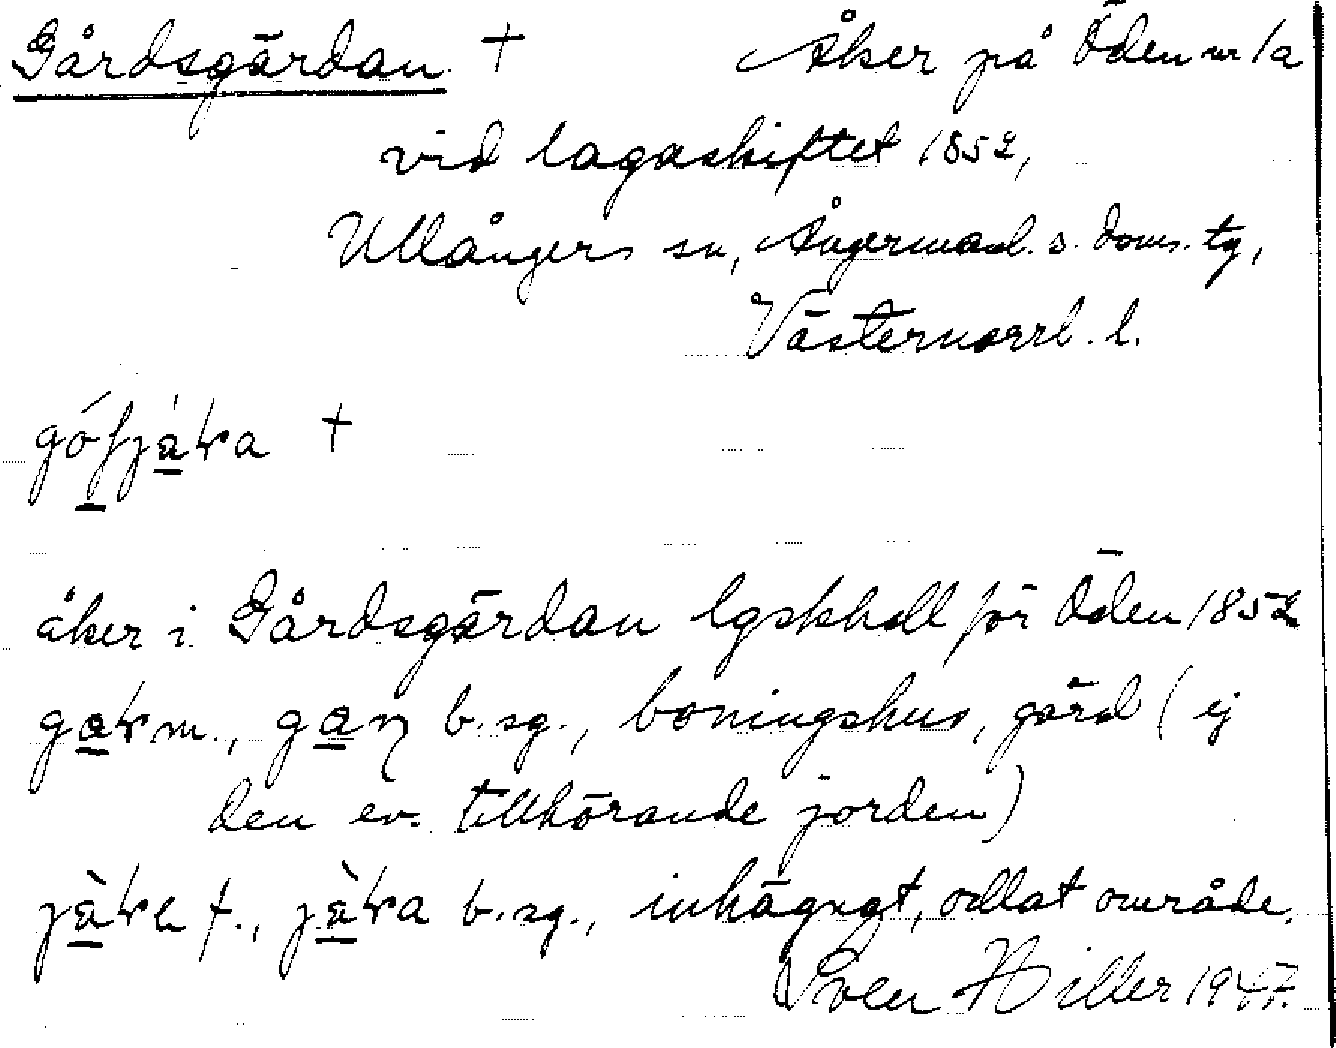 Gårdsgärdan † Åker på Öden nr 1a
vid lagaskiftet 1852,
Ullångers sn, Ångermanl. s. doms. tg,
Västernorrl. l.
†
åker i Gårdsgärdan lgskhdl för Öden 1852
m., b. sg., boningshus, gård (ej
den ev. tillhörande jorden)
f., b. sg., inhägngt, odlat område.
Sven Hiller 1947.